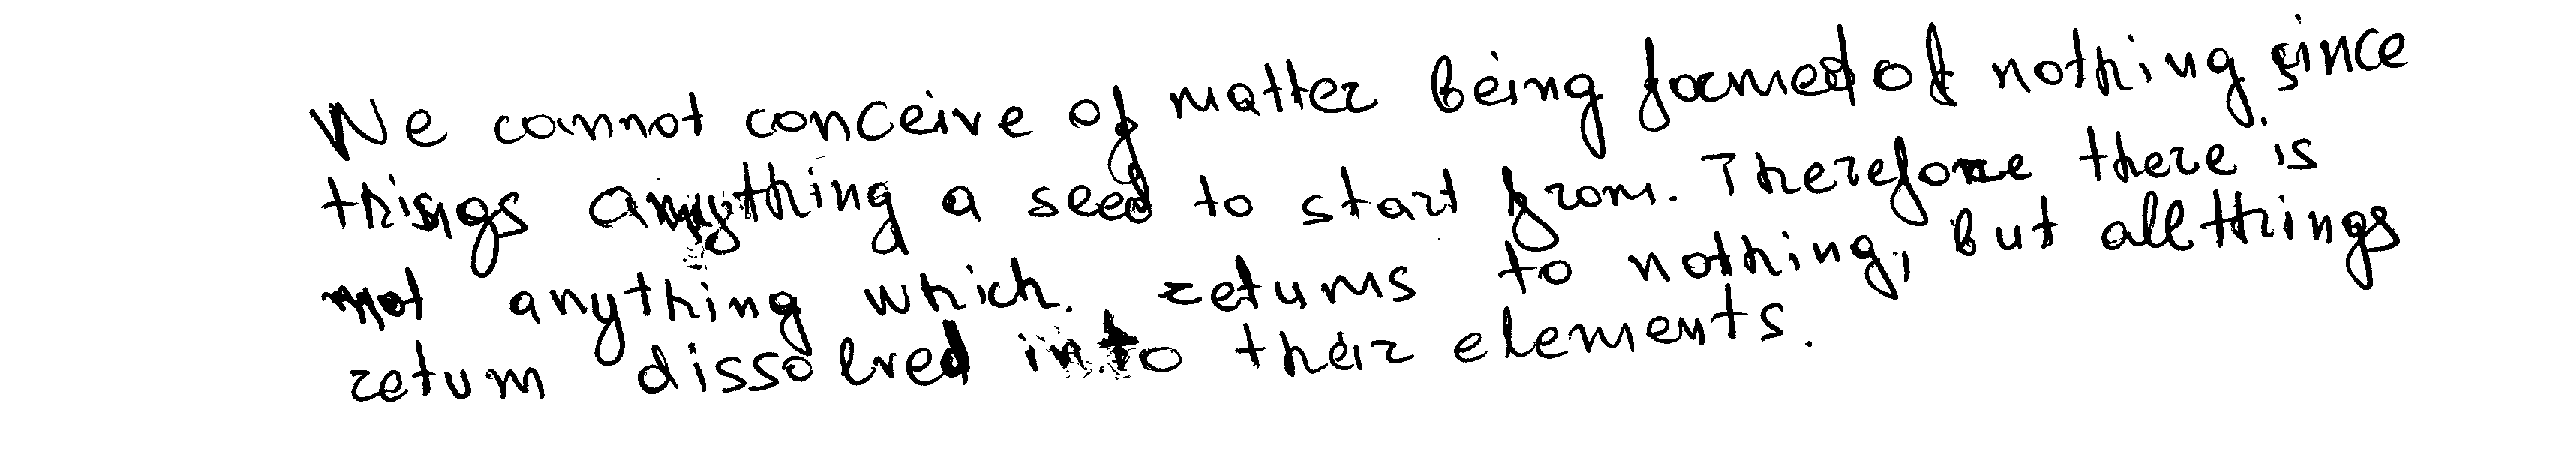 We cannot conceive of matter being formed of nothing since
things anything a seed to start from. Therefore there is
not anything which returns to nothing, but all things
return dissolved into their elements.